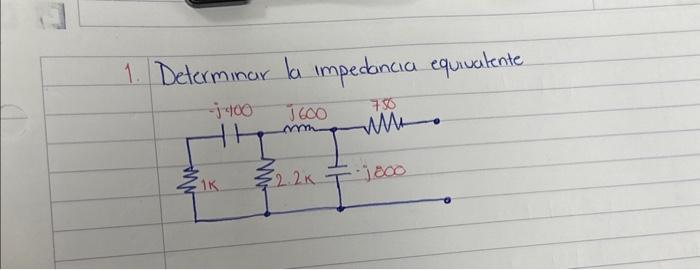 1. Determinar la impedancia equivalente
-j400 j600 750
1K 2.2K -j800